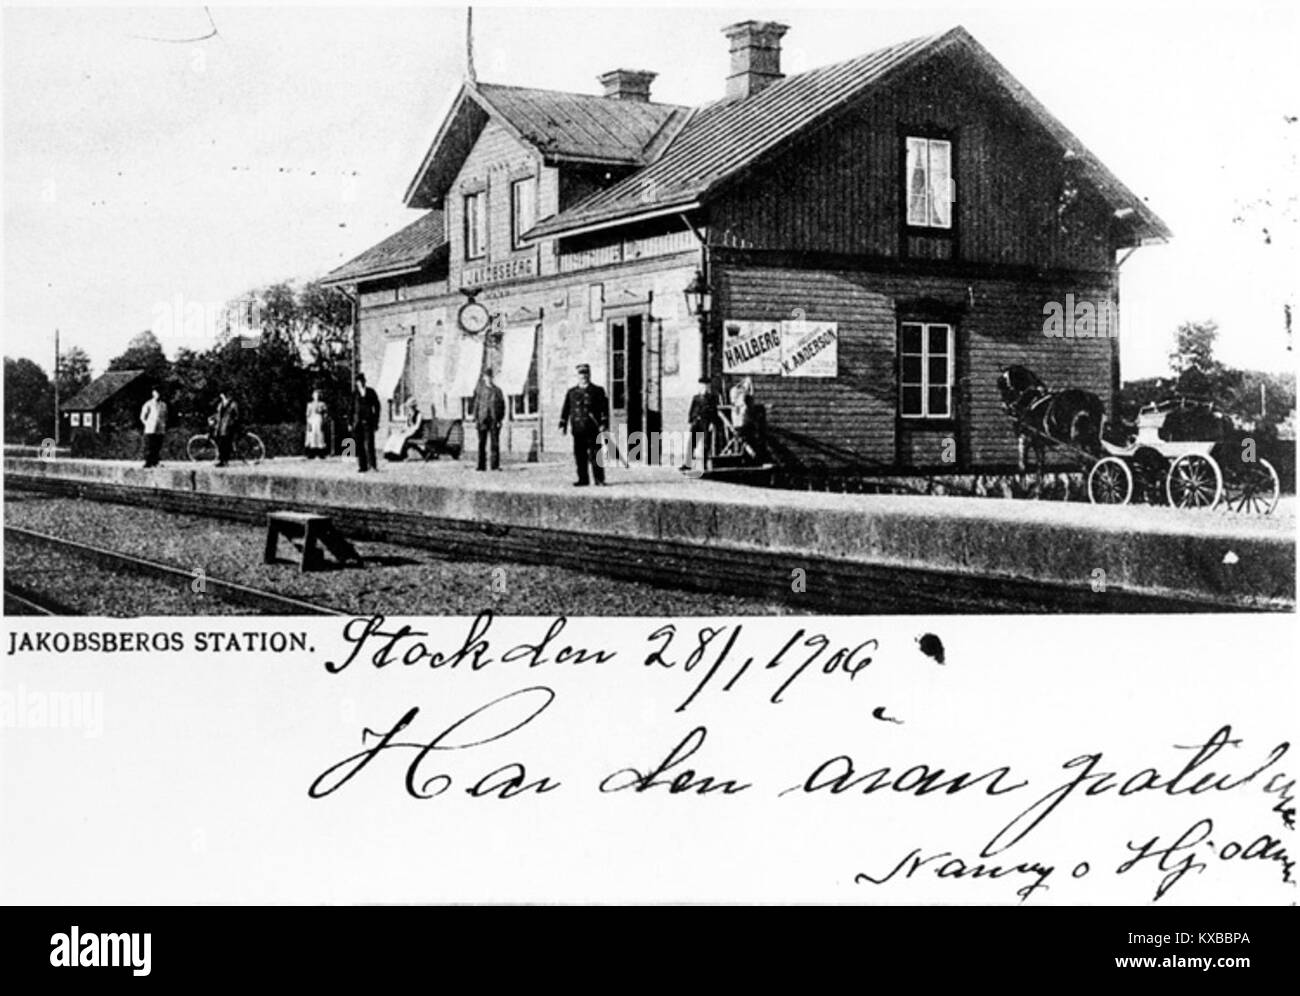 JAKOBSBERG
HALLBERG
K. ANDERSON
JAKOBSBERGS STATION.
Stock den 28/1 1906
Har den äran gratulera
Nanny o
alamy
Image ID: KXBBPA
www.alamy.com